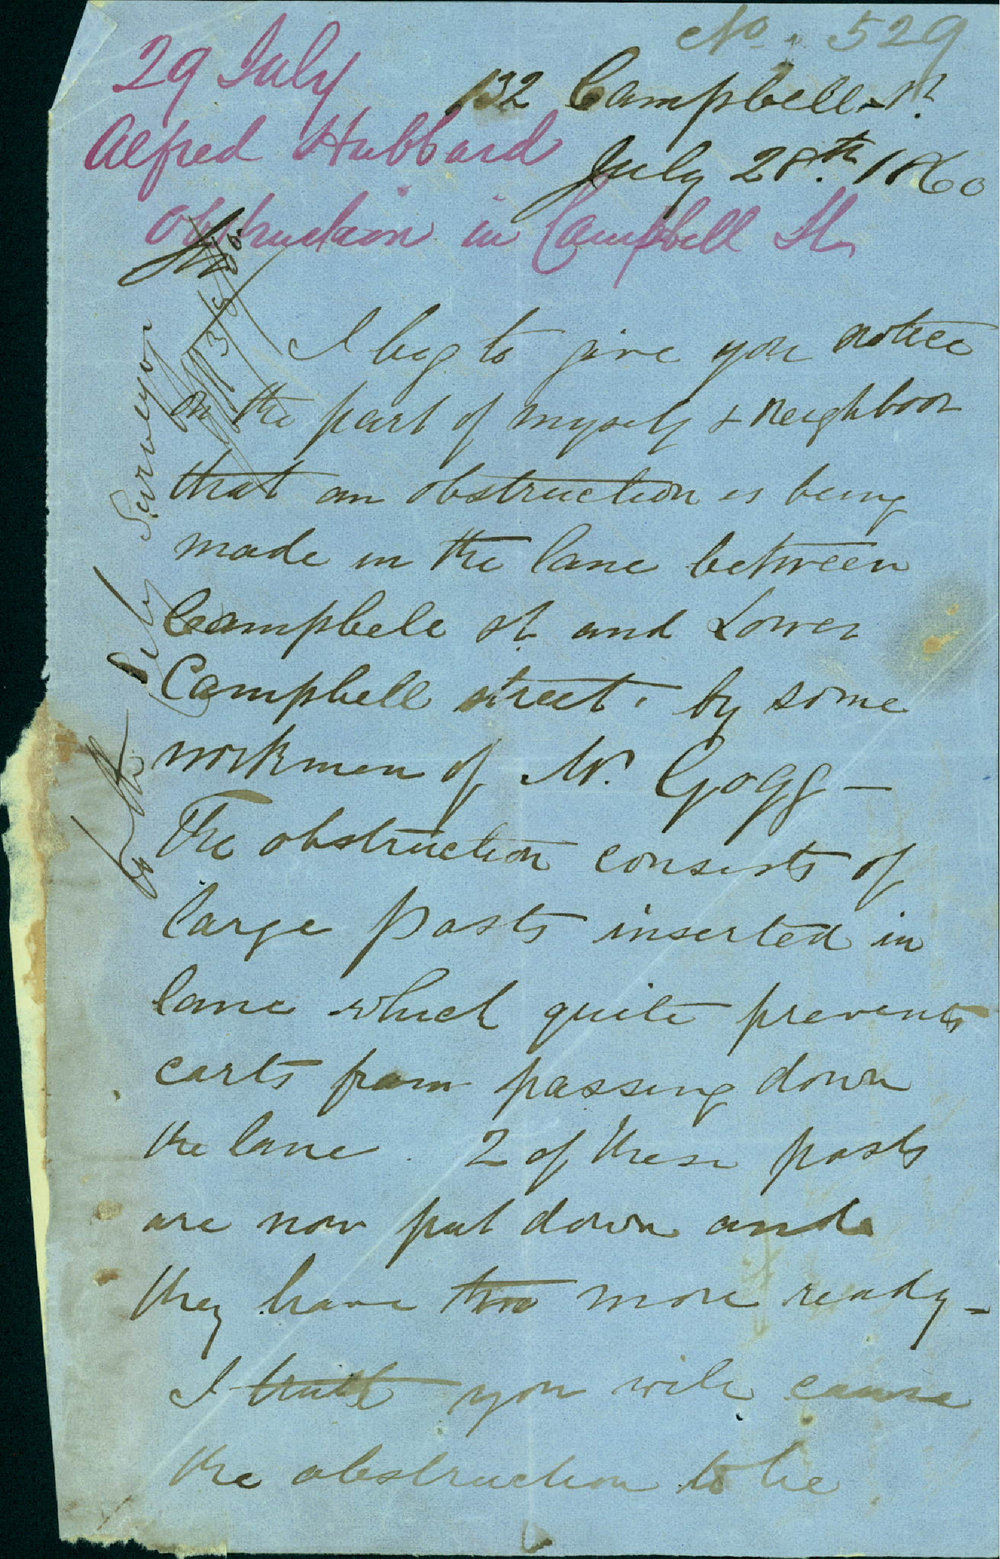 No. 529
29 July
132 Campbell St.
Alfred Hubbard
July 28.th 1860
Obstruction in Campbell St
Sir
I beg to give you notice
on the part of myself & neighbors
that an obstruction is being
made in the lane between
Campbell St and Lower
Campbell street. by some
workmen of Mr. Gogg —
The obstruction consists of
large posts inserted in
lane which quite prevents
carts from passing down
the lane. 2 of these posts
are now put down and
they have two more ready -
I trust you will cause
the obstruction to be
to the City Surveyor